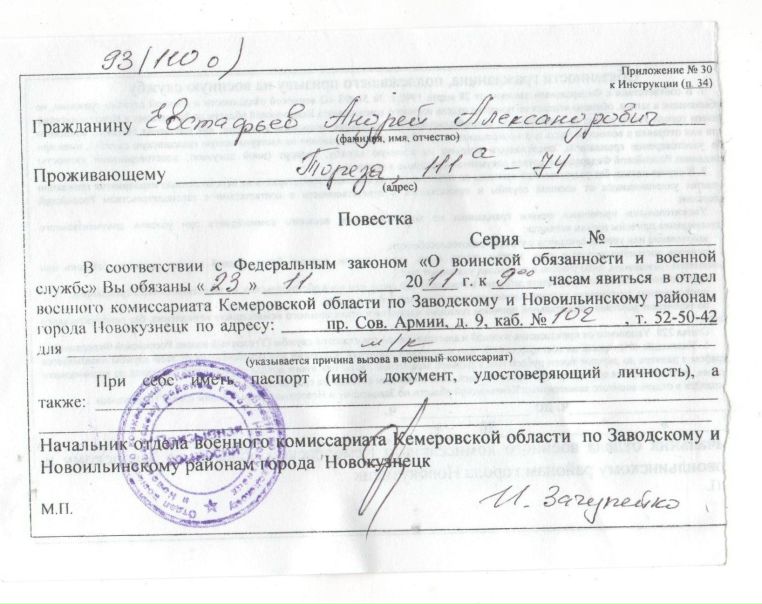 93/110 о)
Приложение № 30
к Инструкции (п 34)
Гражданину Евстафьев Андрей Александрович
(фамилия, имя, отчество)
Проживающему Тореза, 111а – 74
(адрес)
Повестка
Серия ______ № ______
В соответствии с Федеральным законом «О воинской обязанности и военной
службе» Вы обязаны «23» 11 2011 г. к 9⁰⁰ часам явиться в отдел
военного комиссариата Кемеровской области по Заводскому и Новоильинскому районам
города Новокузнецк по адресу: пр. Сов. Армии, д. 9, каб. № 102, т. 52-50-42
для м/к
(указывается причина вызова в военный комиссариат)
При себе иметь паспорт (иной документ, удостоверяющий личность), а
также:
Начальник отдела военного комиссариата Кемеровской области по Заводскому и
Новоильинскому районам города Новокузнецк
М.П.